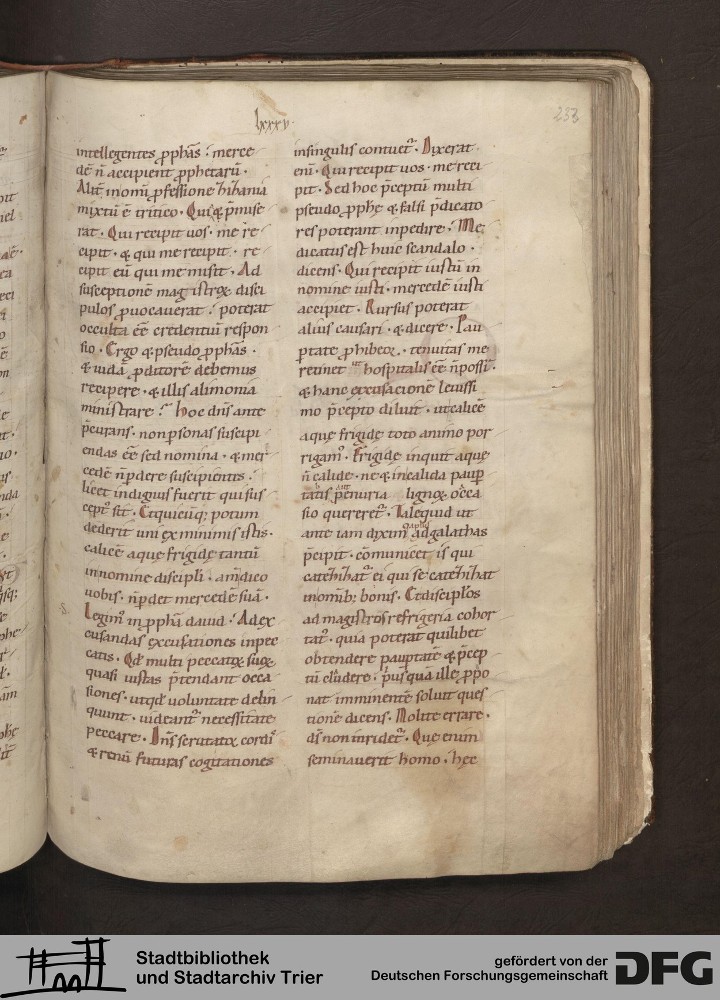 lxxxv
233
intellegentes ꝓphās : merce
dē n̄ accipient ꝓphetarū ·
Alit̄ in om̄i ꝓfessione zizania
mixtū ē tritico · Quia & p̄mise
rat · Qui recipit uos · me re
cipit · & qui me recipit · re
cipit eū qui me misit · Ad
susceptionē magistroꝝ disci
pulos ꝓuocauerat : poterat
occulta eē credentiū respon
sio · Ergo & pseudo ꝓphās ·
& iudā ꝓditorē debemus
recipere · & illis alimonia
ministrare : hoc dn̄s ante
p̄curans · non ꝑsonas suscipi
endas eē sed nomina · & mer
cedē n̄ ꝑdere suscipientis :
licet indignus fuerit qui sus
cept᷒ sit · Et quicūq; potum
dederit uni ex minimis istis ·
calicē aque frigide tantū
in nomine discipli · am̄ dico
uobis · n̄ ꝑdet mercedē suā ·
Legim᷒ in ꝓphā dauid · Ad ex
cusandas excusationes in pec
catis · Qđ multi peccatoꝝ suoꝝ
quasi iustas p̄tendant occa
siones · ut qđ uoluntate delin
quunt · uideant᷑ necessitate
peccare · Dn̄s scrutatoꝝ cordis
& renū futuras cogitationes
in singulis contuet᷑ · Dixerat
enī · Qui recipit uos · me reci
pit · Sed hoc p̄ceptū multi
pseudo ꝓphę & falsi p̄dicato
res poterant inpedire · Me
dicatus est huic scandalo ·
dicens · Qui recipit iustū in
nomine iusti · mercedē iusti
accipiet · Rursus poterat
alius causari · & dicere · Pau
ꝑtate ꝓhibeor · tenuitas me
retinet ut hospitalis eē n̄ possī ·
& hanc excusacionē leuissi
mo p̄cepto diluit · ut calicē
aque frigide toto animo por
rigam᷒ · Frigide inquit aque
n̄ calide · ne & in calida pauꝑ
tatis & penuria lignoꝝ occa
sio quereret᷑ · Tale quid ut
ante iam dixim᷒ apl's ad galathas
p̄cipit · cōmunicet is qui
catezizat᷑ ei qui se catezizat
in omīb; bonis · Et discipłos
ad magistros refrigeria cohor
tat᷑ · quia poterat quilibet
obtendere pauꝑtatē & p̄cep
tū eludere · p̄usquā ille ꝓpo
nat imminentē soluit ques
tionē dicens · Nolite errare ·
ds̄ non inridet᷑ · Que enim
seminauerit homo · hec
Stadtbibliothek
und Stadtarchiv Trier
gefördert von der
Deutschen Forschungsgemeinschaft
DFG